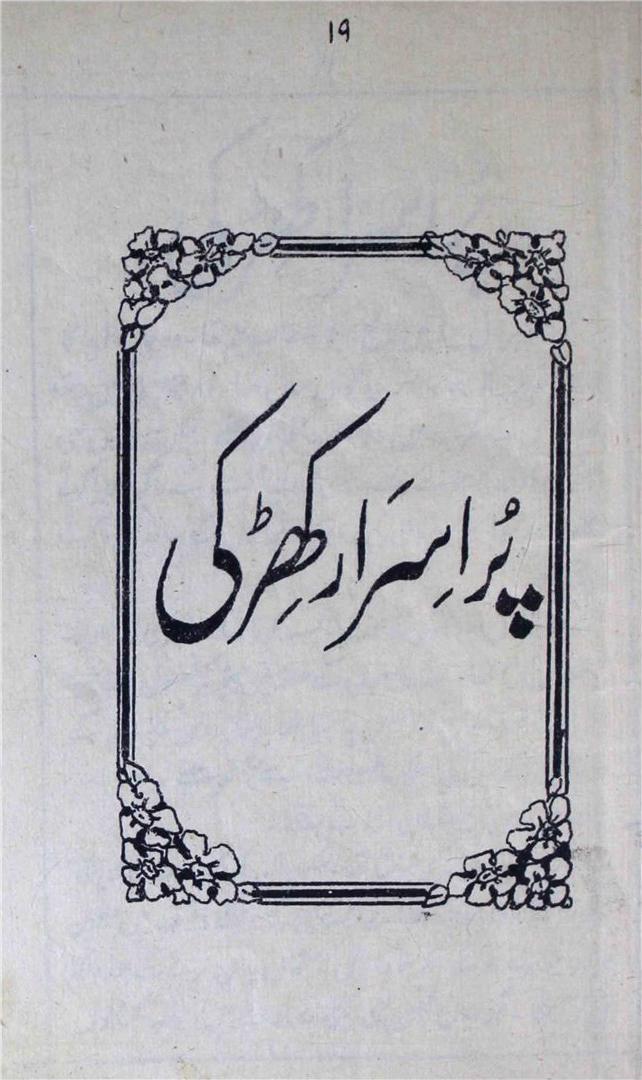 19
پُر اسِرَار کھِڑکی